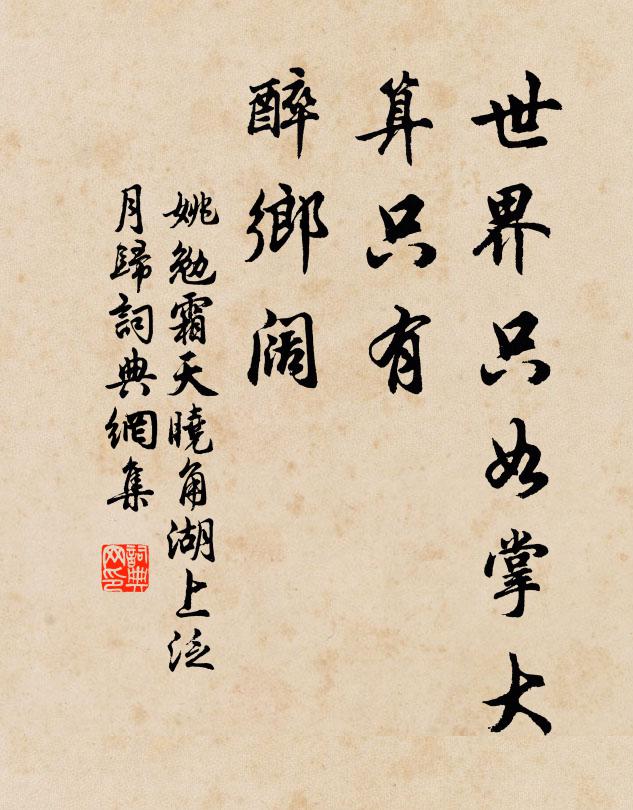 世界只如掌大
算只有
醉鄉阔
姚勉霜天曉角湖上泛
月歸詞典網集
詞典网印